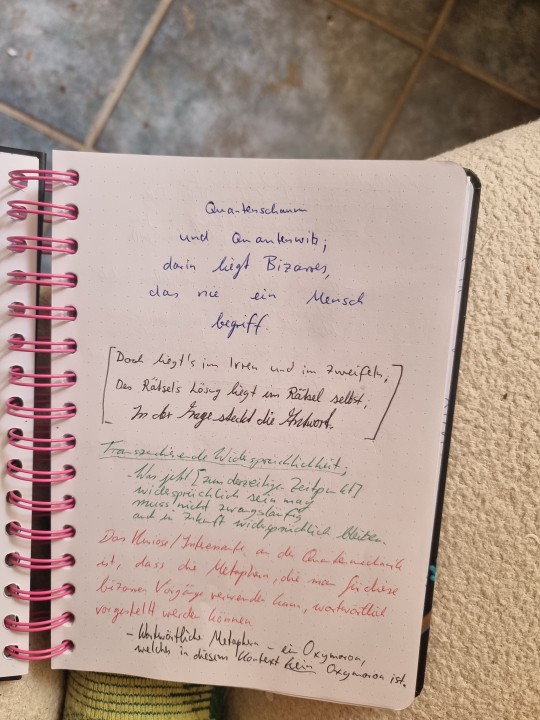 Quantenschaum
und Quantenwitz;
darin liegt Bizarres,
das nie ein Mensch
begriff.
[Doch liegt's im Irren und im Zweifeln;
Des Rätsels Lösung liegt im Rätsel selbst;
In der Frage steckt die Antwort.]
Transzendierende Widersprüchlichkeit;
- Was jetzt [zum derzeitigen Zeitpunkt]
widersprüchlich sein mag
muss nicht zwangsläufig
auch in Zukunft widersprüchlich bleiben.
Das Kuriose/Interessante an der Quantenmechanik
ist, dass die Metaphern, die man für diese
bizarren Vorgänge verwenden kann, wortwörtlich
vorgestellt werden können
- Wortwörtliche Metaphern - ein Oxymoron,
welches in diesem Kontext kein Oxymoron ist.